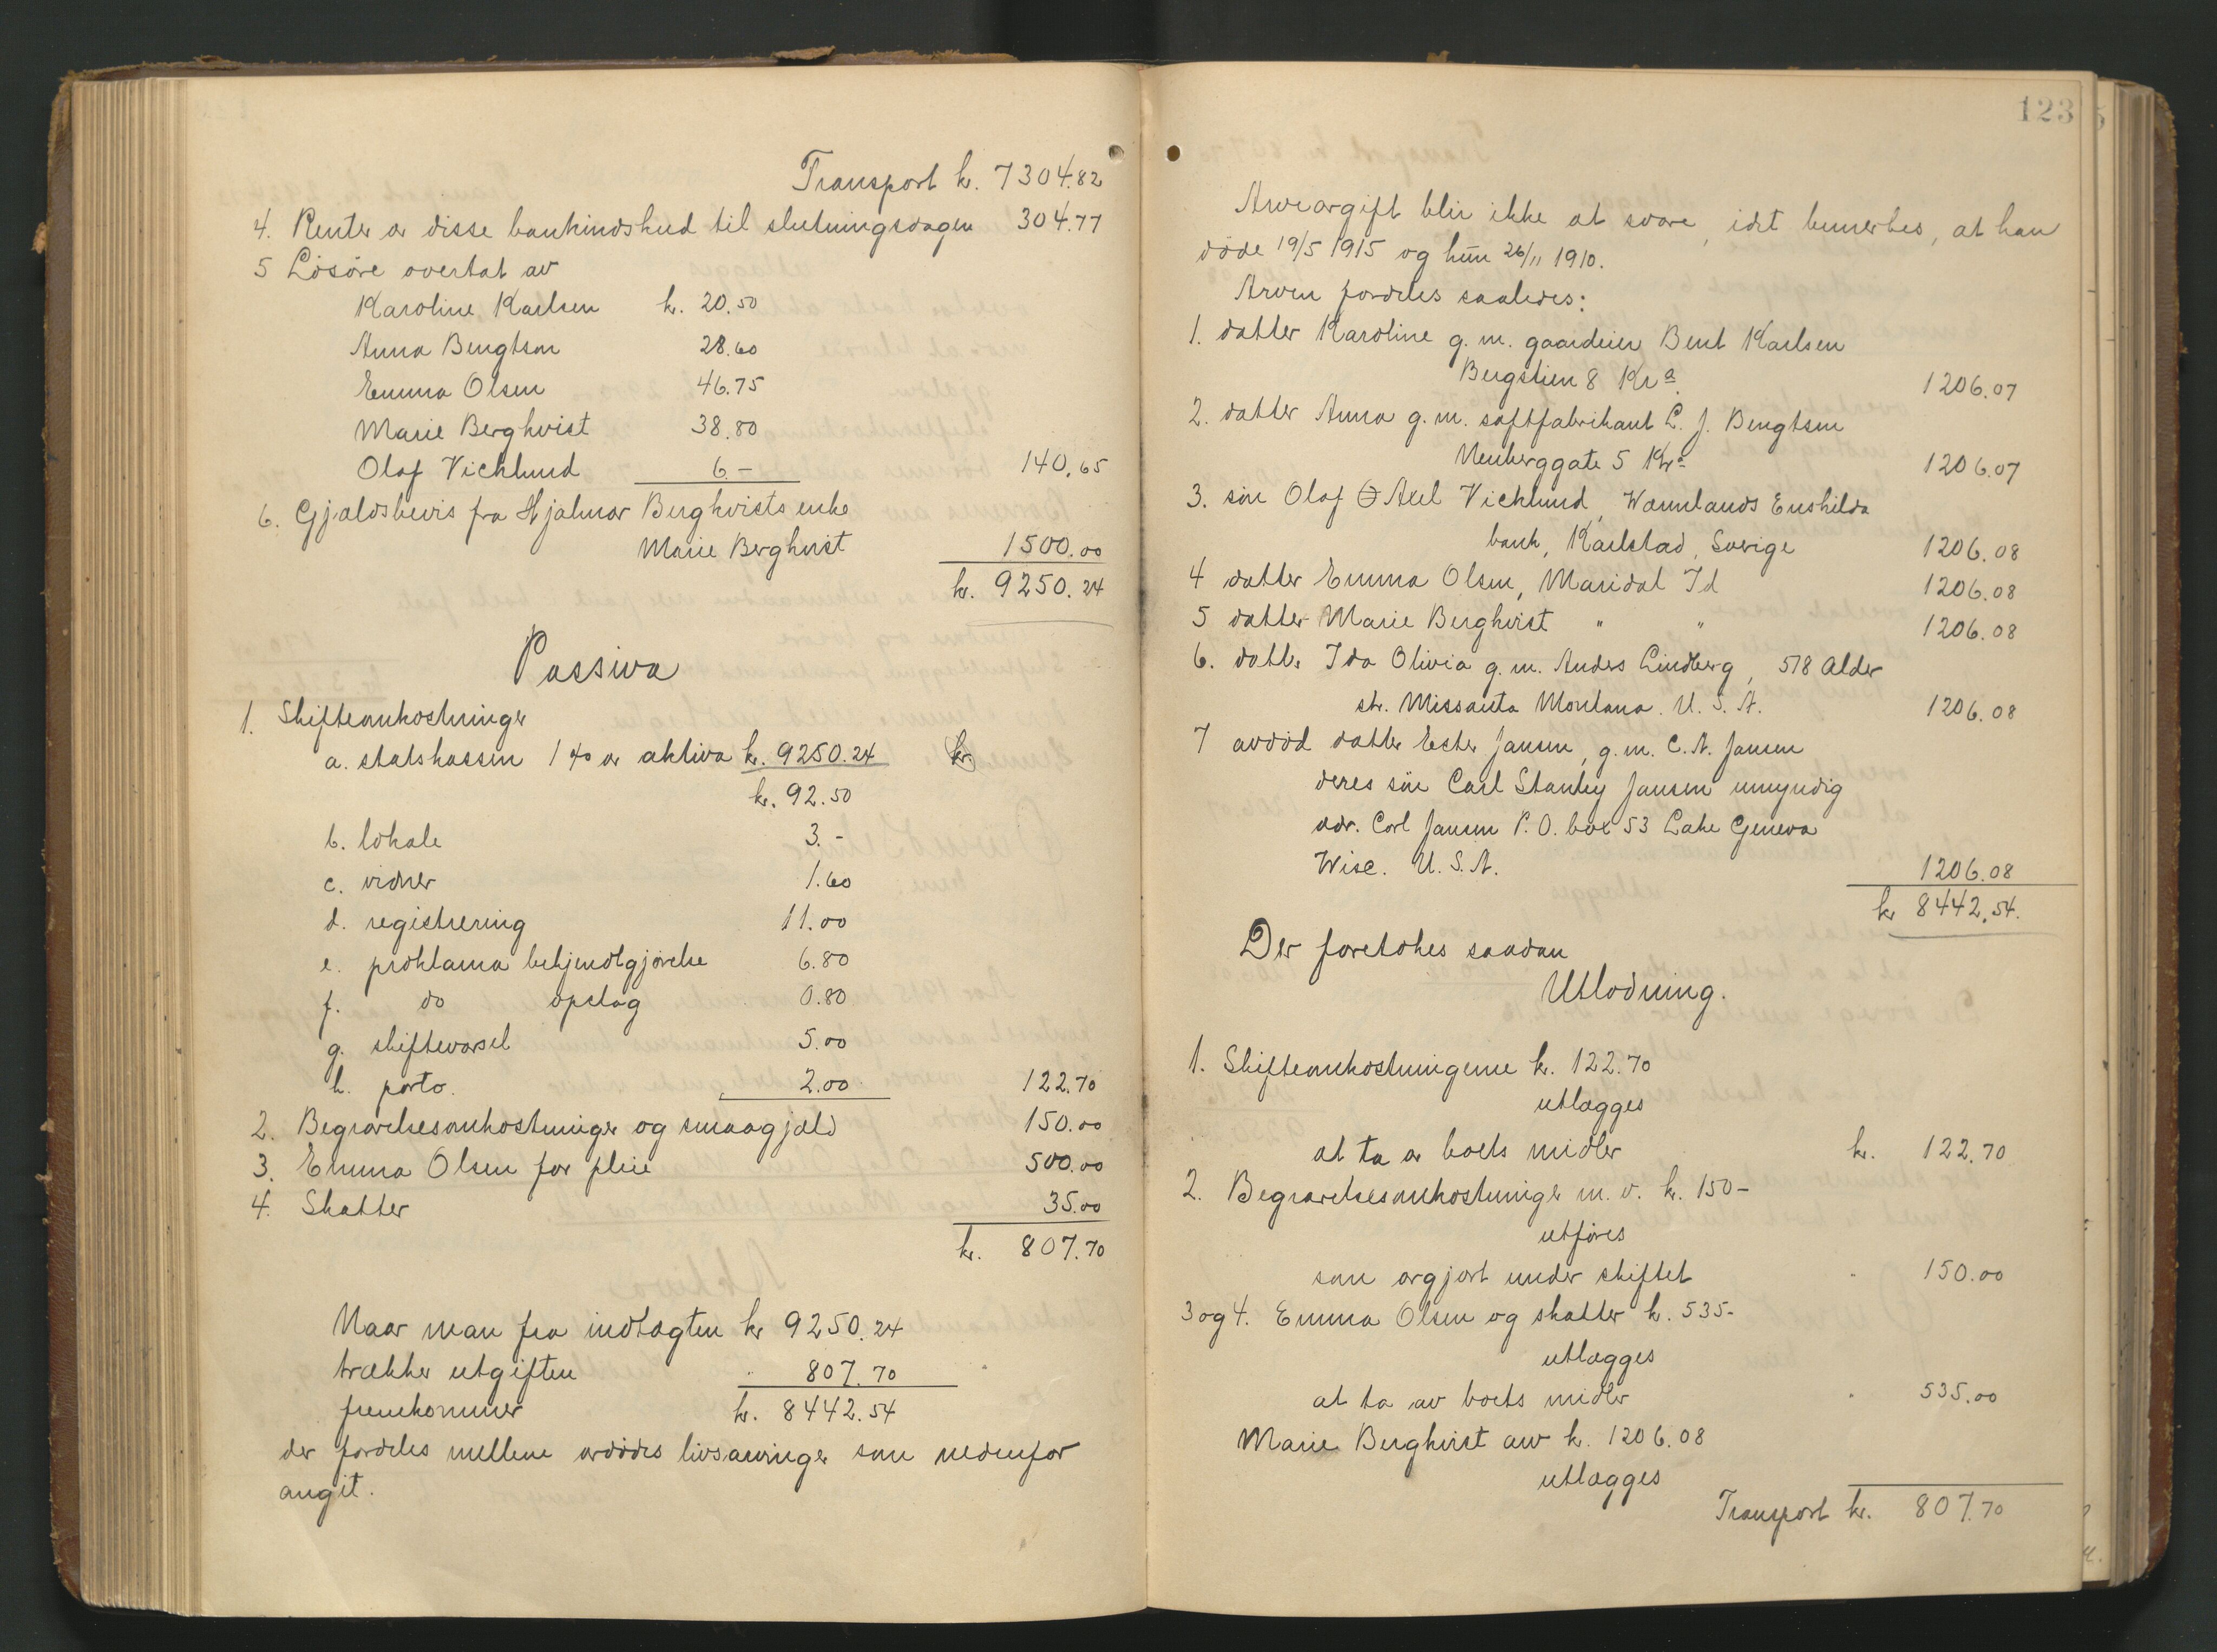 Transport kr. 7304.82
4. Renter av disse bankindskud til slutningsdagen 304.77
5 Løsøre overtat av
Karoline Karlsen kr. 20.50
Anna Bengtson 28.60
Emma Olsen 46.75
Marie Berghvist 38.80
Olaf Vicklund 6.– 140.65
6. Gjældsbevis fra Hjalmar Berghvists enke
Marie Berghvist 1500.00
kr. 9250.24
Passiva
1. Skifteomkostninger
a. statskassen 1 % av aktiva kr. 9250.24 kr.
kr. 92.50
b. lokale 3.–
c. vidner 1.60
d. registrering 11.00
e. proklama bekjendtgjørelse 6.80
f. do opslag 0.80
g. skiftevarsel 5.00
h. porto. 2.00 122.70
2. Begravelsesomkostninger og smaagjæld 150.00
3. Emma Olsen for pleie 500.00
4. Skatter 35.00
kr. 807.70
Naar man fra indtægten kr 9250.24
trækker utgiften 807.70
fremkommer kr. 8442.54
der fordeles mellem avdødes livsarvinger som nedenfor
angit.
123
Arveavgift blir ikke at svare, idet bemerkes, at han
døde 19/5 1915 og hun 26/11 1910.
Arven fordeles saaledes:
1. datter Karoline g. m. gaardeier Bent Karlsen
Bergstien 8 Kra. 1206.07
2. datter Anna g. m. saftfabrikant L. J. Bengtsen
Neuberggate 5 Kra 1206.07
3. søn Olaf Axel Vicklund, Wermlands Enskilda
bank, Karlstad, Sverige 1206.08
4 datter Emma Olsen, Maridal Id 1206.08
5 datter Marie Berghvist " " 1206.08
6. datter Ida Olivia g. m. Anders Lindberg, 518 Alder
str. Missauta Montana. U. S. A. 1206.08
7 avdød datter Ester Jansen, g. m. C. A. Jansen
deres søn Carl Stanley Jansen umyndig
adr. Carl Jansen P. O. box 53 Lake Geneva
Wisc. U. S. A. 1206.08
kr 8442.54.
Der foretokes saadan
Utlodning.
1. Skifteomkostningerne kr. 122.70
utlægges
at ta av boets midler kr. 122.70
2. Begravelsesomkostninger m. v. kr. 150–
utføres
som avgjort under skiftet " 150.00
3 og 4. Emma Olsen og skatter kr. 535–
utlægges
at ta av boets midler " 535.00
Marie Berghvist arv kr. 1206.08
utlægges
Transport kr. 807.70